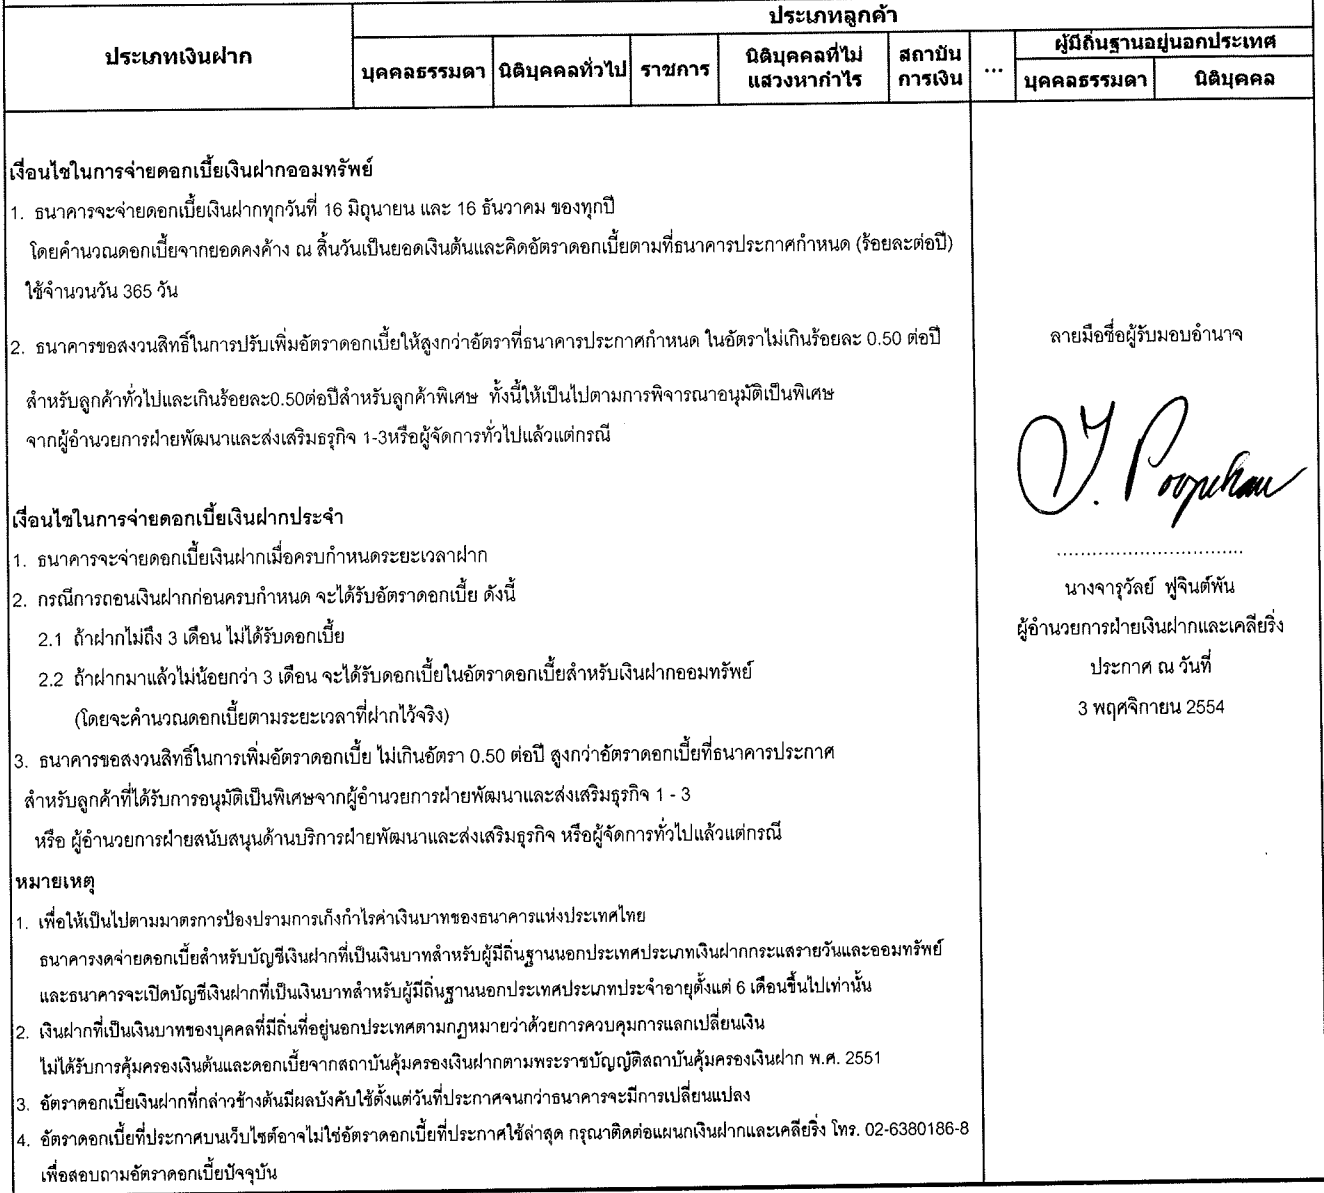 ประเภทเงินฝาก
ประเภทลูกค้า
บุคคลธรรมดา
นิติบุคคลทั่วไป
ราชการ
นิติบุคคลที่ไม่
แสวงหากำไร
สถาบัน
การเงิน
...
ผู้มีถิ่นฐานอยู่นอกประเทศ
บุคคลธรรมดา
นิติบุคคล
เงื่อนไขในการจ่ายดอกเบี้ยเงินฝากออมทรัพย์
1. ธนาคารจะจ่ายดอกเบี้ยเงินฝากทุกวันที่ 16 มิถุนายน และ 16 ธันวาคม ของทุกปี
โดยคำนวณดอกเบี้ยจากยอดคงค้าง ณ สิ้นวันเป็นยอดเงินต้นและคิดอัตราดอกเบี้ยตามที่ธนาคารประกาศกำหนด (ร้อยละต่อปี)
ใช้จำนวนวัน 365 วัน
2. ธนาคารขอสงวนสิทธิ์ในการปรับเพิ่มอัตราดอกเบี้ยให้สูงกว่าอัตราที่ธนาคารประกาศกำหนด ในอัตราไม่เกินร้อยละ 0.50 ต่อปี
สำหรับลูกค้าทั่วไปและเกินร้อยละ0.50ต่อปีสำหรับลูกค้าพิเศษ ทั้งนี้ให้เป็นไปตามการพิจารณาอนุมัติเป็นพิเศษ
จากผู้อำนวยการฝ่ายพัฒนาและส่งเสริมธรุกิจ 1-3หรือผู้จัดการทั่วไปแล้วแต่กรณี
เงื่อนไขในการจ่ายดอกเบี้ยเงินฝากประจำ
1. ธนาคารจะจ่ายดอกเบี้ยเงินฝากเมื่อครบกำหนดระยะเวลาฝาก
2. กรณีการถอนเงินฝากก่อนครบกำหนด จะได้รับอัตราดอกเบี้ย ดังนี้
2.1 ถ้าฝากไม่ถึง 3 เดือน ไม่ได้รับดอกเบี้ย
2.2 ถ้าฝากมาแล้วไม่น้อยกว่า 3 เดือน จะได้รับดอกเบี้ยในอัตราดอกเบี้ยสำหรับเงินฝากออมทรัพย์
(โดยจะคำนวณดอกเบี้ยตามระยะเวลาที่ฝากไว้จริง)
3. ธนาคารขอสงวนสิทธิ์ในการเพิ่มอัตราดอกเบี้ย ไม่เกินอัตรา 0.50 ต่อปี สูงกว่าอัตราดอกเบี้ยที่ธนาคารประกาศ
สำหรับลูกค้าที่ได้รับการอนุมัติเป็นพิเศษจากผู้อำนวยการฝ่ายพัฒนาและส่งเสริมธุรกิจ 1 - 3
หรือ ผู้อำนวยการฝ่ายสนับสนุนด้านบริการฝ่ายพัฒนาและส่งเสริมธุรกิจ หรือผู้จัดการทั่วไปแล้วแต่กรณี
หมายเหตุ
1. เพื่อให้เป็นไปตามมาตรการป้องปรามการเก็งกำไรค่าเงินบาทของธนาคารแห่งประเทศไทย
ธนาคารงดจ่ายดอกเบี้ยสำหรับบัญชีเงินฝากที่เป็นเงินบาทสำหรับผู้มีถิ่นฐานนอกประเทศประเภทเงินฝากกระแสรายวันและออมทรัพย์
และธนาคารจะเปิดบัญชีเงินฝากที่เป็นเงินบาทสำหรับผู้มีถิ่นฐานนอกประเทศประเภทประจำอายุตั้งแต่ 6 เดือนขึ้นไปเท่านั้น
2. เงินฝากที่เป็นเงินบาทของบุคคลที่มีถิ่นที่อยู่นอกประเทศตามกฎหมายว่าด้วยการควบคุมการแลกเปลี่ยนเงิน
ไม่ได้รับการคุ้มครองเงินต้นและดอกเบี้ยจากสถาบันคุ้มครองเงินฝากตามพระราชบัญญัติสถาบันคุ้มครองเงินฝาก พ.ศ. 2551
3. อัตราดอกเบี้ยเงินฝากที่กล่าวข้างต้นมีผลบังคับใช้ตั้งแต่วันที่ประกาศจนกว่าธนาคารจะมีการเปลี่ยนแปลง
4. อัตราดอกเบี้ยที่ประกาศบนเว็บไซต์อาจไม่ใช่อัตราดอกเบี้ยที่ประกาศใช้ล่าสุด กรุณาติดต่อแผนกเงินฝากและเคลียริ่ง โทร. 02-6380186-8
เพื่อสอบถามอัตราดอกเบี้ยปัจจุบัน
ลายมือชื่อผู้รับมอบอำนาจ
................................
นางจารุวัลย์ ฟูจินต์พัน
ผู้อำนวยการฝ่ายเงินฝากและเคลียริ่ง
ประกาศ ณ วันที่
3 พฤศจิกายน 2554